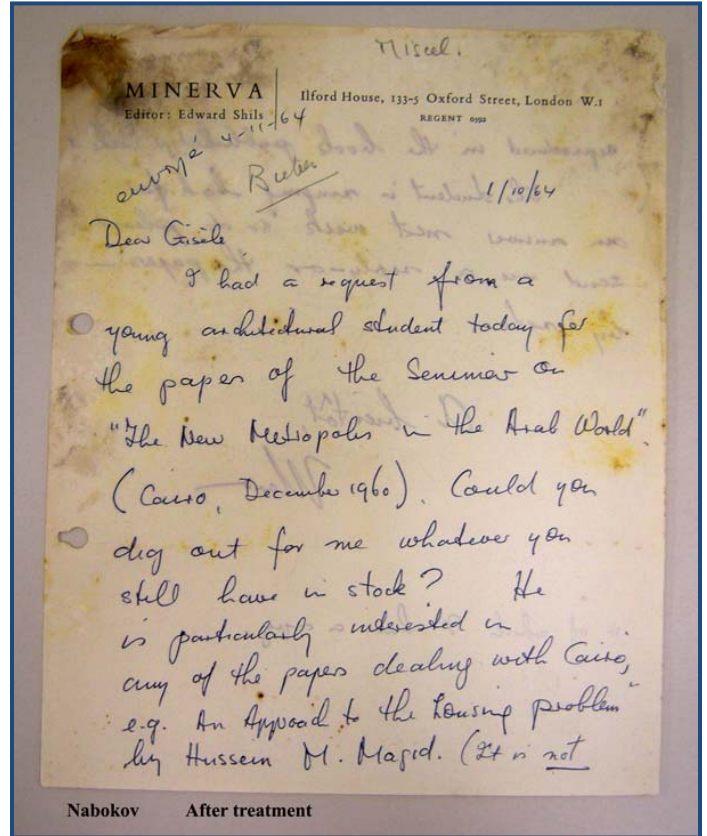 Miscel.
MINERVA
Editor: Edward Shils
Ilford House, 133-5 Oxford Street, London W.1
REGENT 0592
envoyé 4-11-64
1/10/64
Dear Gisèle,
I had a request from a
young architectural student today for
the paper of the Seminar on
"The New Metropolis in the Arab World"
(Cairo, December 1960). Could you
dig out for me whatever you
still have in stock? He
is particularly interested in
any of the papers dealing with Cairo,
e.g. An Approach to the housing problem"
by Hussein M. Magid. (It is not
Nabokov After treatment